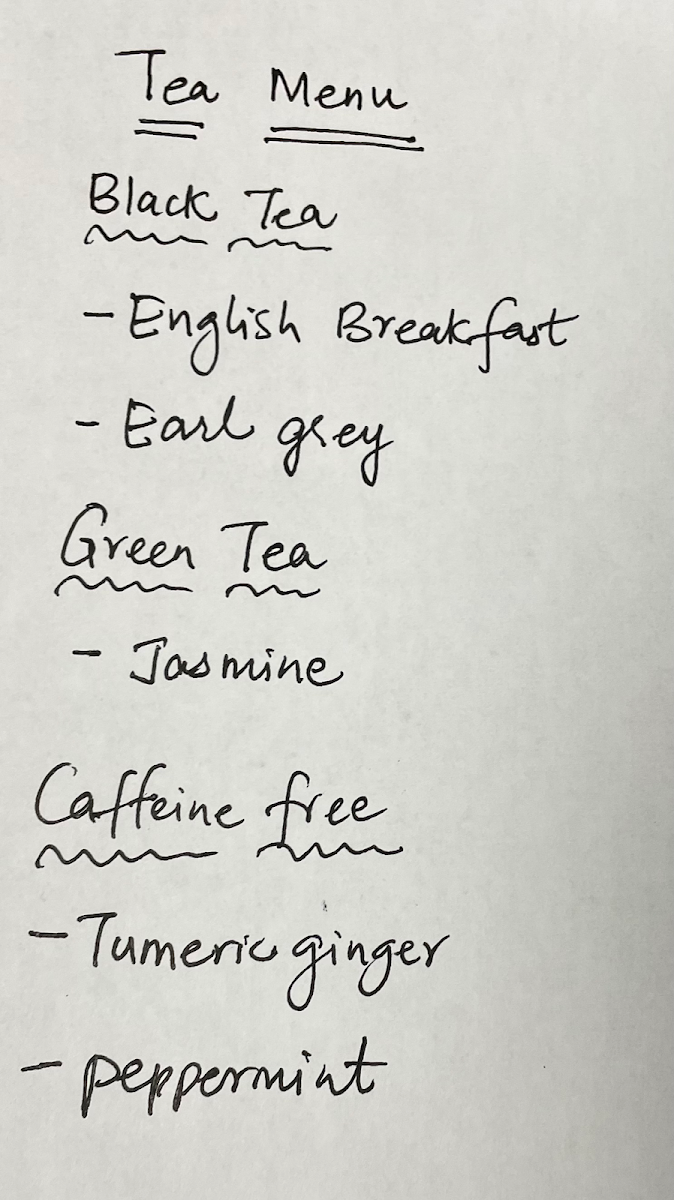 Tea Menu
Black Tea
- English Breakfast
- Earl grey
Green Tea
- Jasmine
Caffeine free
- Tumeric ginger
- peppermint